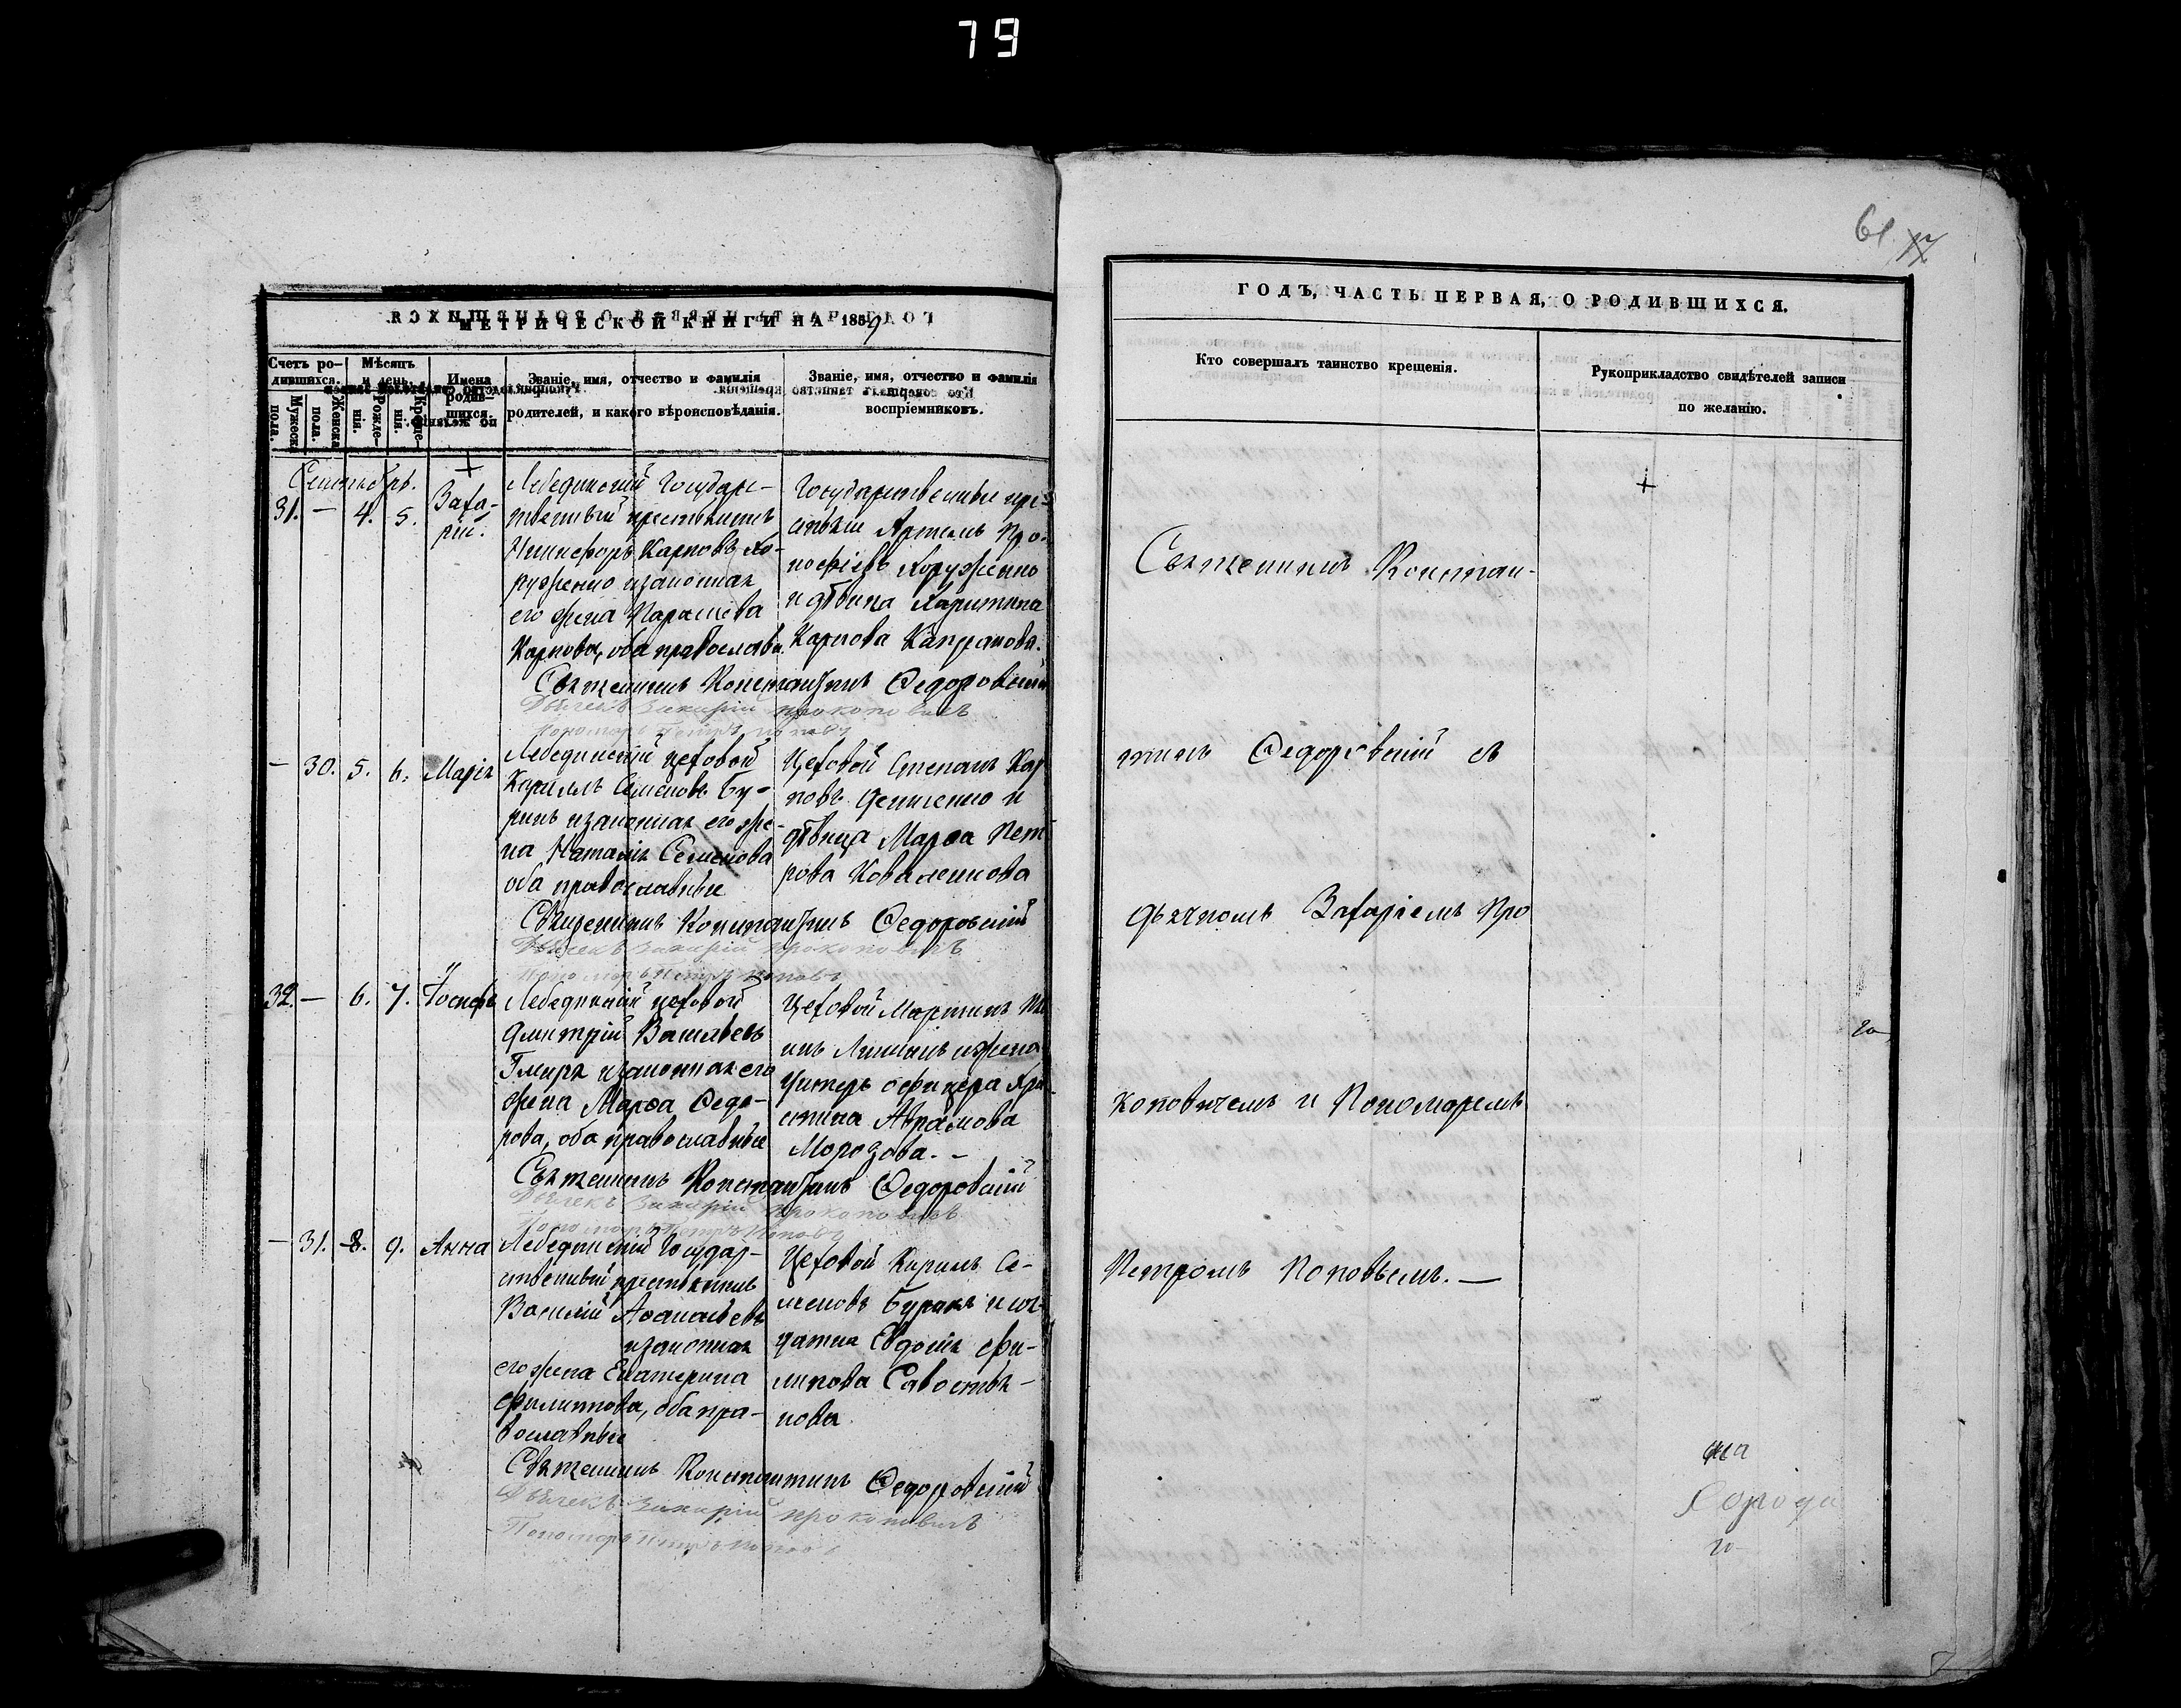 79
61
МЕТРИЧЕСКОЙ КНИГИ НА 1859
Счетъ ро-
дившихся.
Мужеска пола.
Женска пола.
Мѣсяцъ
и день.
Рожде-
нія.
Креще-
нія.
Имена
родив-
шихся.
Званіе, имя, отчество и фамилія
родителей, и какого вѣроисповѣданія.
Званіе, имя, отчество и фамилія
воспріемниковъ.
Сентябрь.
31. — 4. 5.
Заха-
рій.
Лебединскій Государ-
ственный крестьянинъ
Никифоръ Карповъ Хо-
руженко и законная
его жена Параскева
Карпова, оба православн.
Государственные кре-
стьяне Артемъ Про-
кофіевъ Хоруженко
и дѣвица Харитина
Карпова
Священникъ Константинъ Ѳедоровскій
Дьячекъ Захарій Прокоповичъ
Пономарь Петръ Поповъ
— 30. 5. 6. Марія
Лебединскій цеховой
Кириллъ Семеновъ Бу-
ракъ и законная его же-
на Наталія Семенова
оба православные
Цеховой Степанъ Кар
повъ Денисенко и
дѣвица Марѳа Пет
рова Коваленкова
Священникъ Константинъ Ѳедоровскій
Дьячекъ Захарій Прокоповичъ
Пономарь Петръ Поповъ
32. — 6. 7. Іосифъ
Лебединскій цеховой
Дмитрій Васильевъ
Гмиря и законная его
жена Марѳа Ѳедо-
рова, оба православные
Цеховой Мартинъ
и жена
Унтеръ офицера Хри-
стина Аврамова
Морозова. —
Священникъ Константинъ Ѳедоровскій
Дьячекъ Захарій Прокоповичъ
Пономарь Петръ Поповъ
— 31. 8. 9. Анна
Лебединскій Государ-
ственный крестьянинъ
Василій Аѳанасьевъ
и законная
его жена Екатерина
Филиппова, оба пра-
вославные
Цеховой Кирилъ Се-
меновъ Буракъ и
Евдокія Фи-
липова Савостья-
нова
Священникъ Константинъ Ѳедоровскій
Дьячекъ Захарій Прокоповичъ
Пономарь Петръ Поповъ
ГОДЪ, ЧАСТЬ ПЕРВАЯ, О РОДИВШИХСЯ.
Кто совершалъ таинство крещенія.
Рукоприкладство свидѣтелей записи
по желанію.
Священникъ Констан-
тинъ Ѳедоровскій съ
дьячкомъ Захаріемъ Про
коповичемъ и Пономаремъ
Петромъ Поповымъ. —